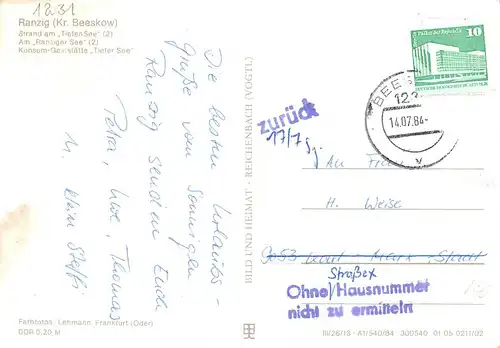 1231
Ranzig (Kr. Beeskow)
Strand am „Tiefen See" (2)
Am „Ranziger See" (2)
Konsum-Gaststätte „Tiefer See"
Die besten Urlaubs-
grüße vom Sonnigen
Ranzig senden Euch
Petra, Uwe, Thomas
u. klein Steffi
Farbfotos: Lehmann, Frankfurt (Oder)
DDR 0,20 M
BILD UND HEIMAT · REICHENBACH (VOGTL)
Palast der Republik
10
DEUTSCHE DEMOKRATISCHE REPUBLIK
BEES
123
14.07.84
zurück
17/7
An Fam
H. Weise
9053 Karl-Marx-Stadt
Straße
Ohne Hausnummer
nicht zu ermitteln
III/26/13 · A1/540/84 300540 01 05 0211/02